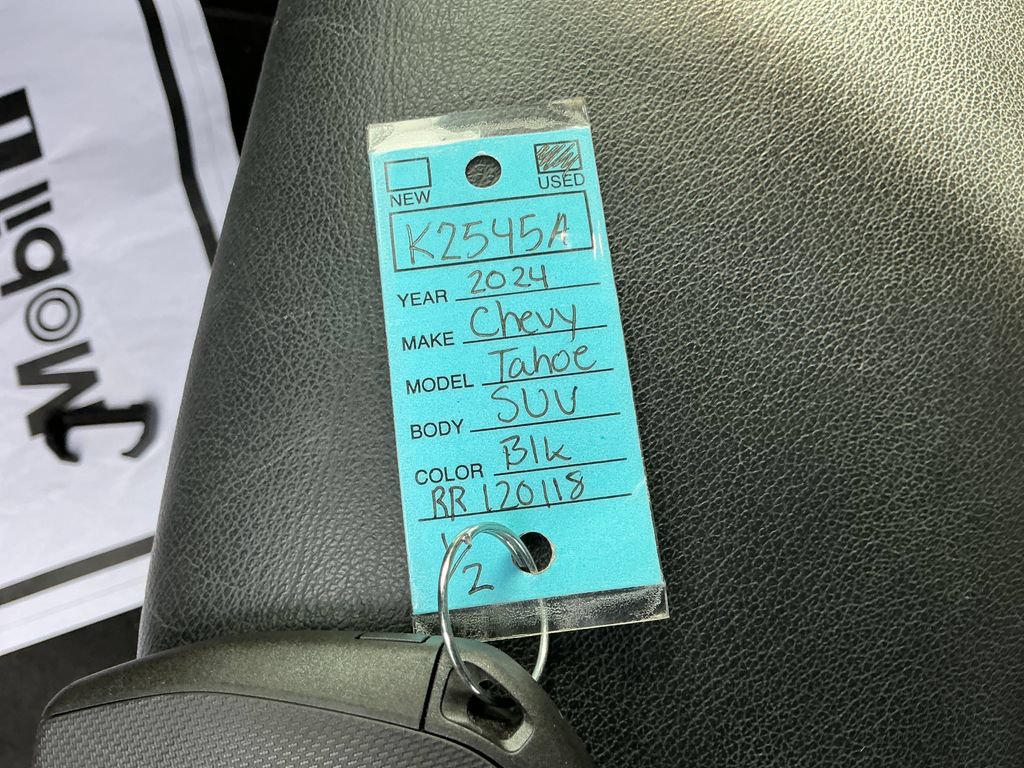 NEW USED
K2545A
YEAR 2024
MAKE Chevy
MODEL Tahoe
BODY SUV
COLOR Blk
RR 120118
1/2
Mobil